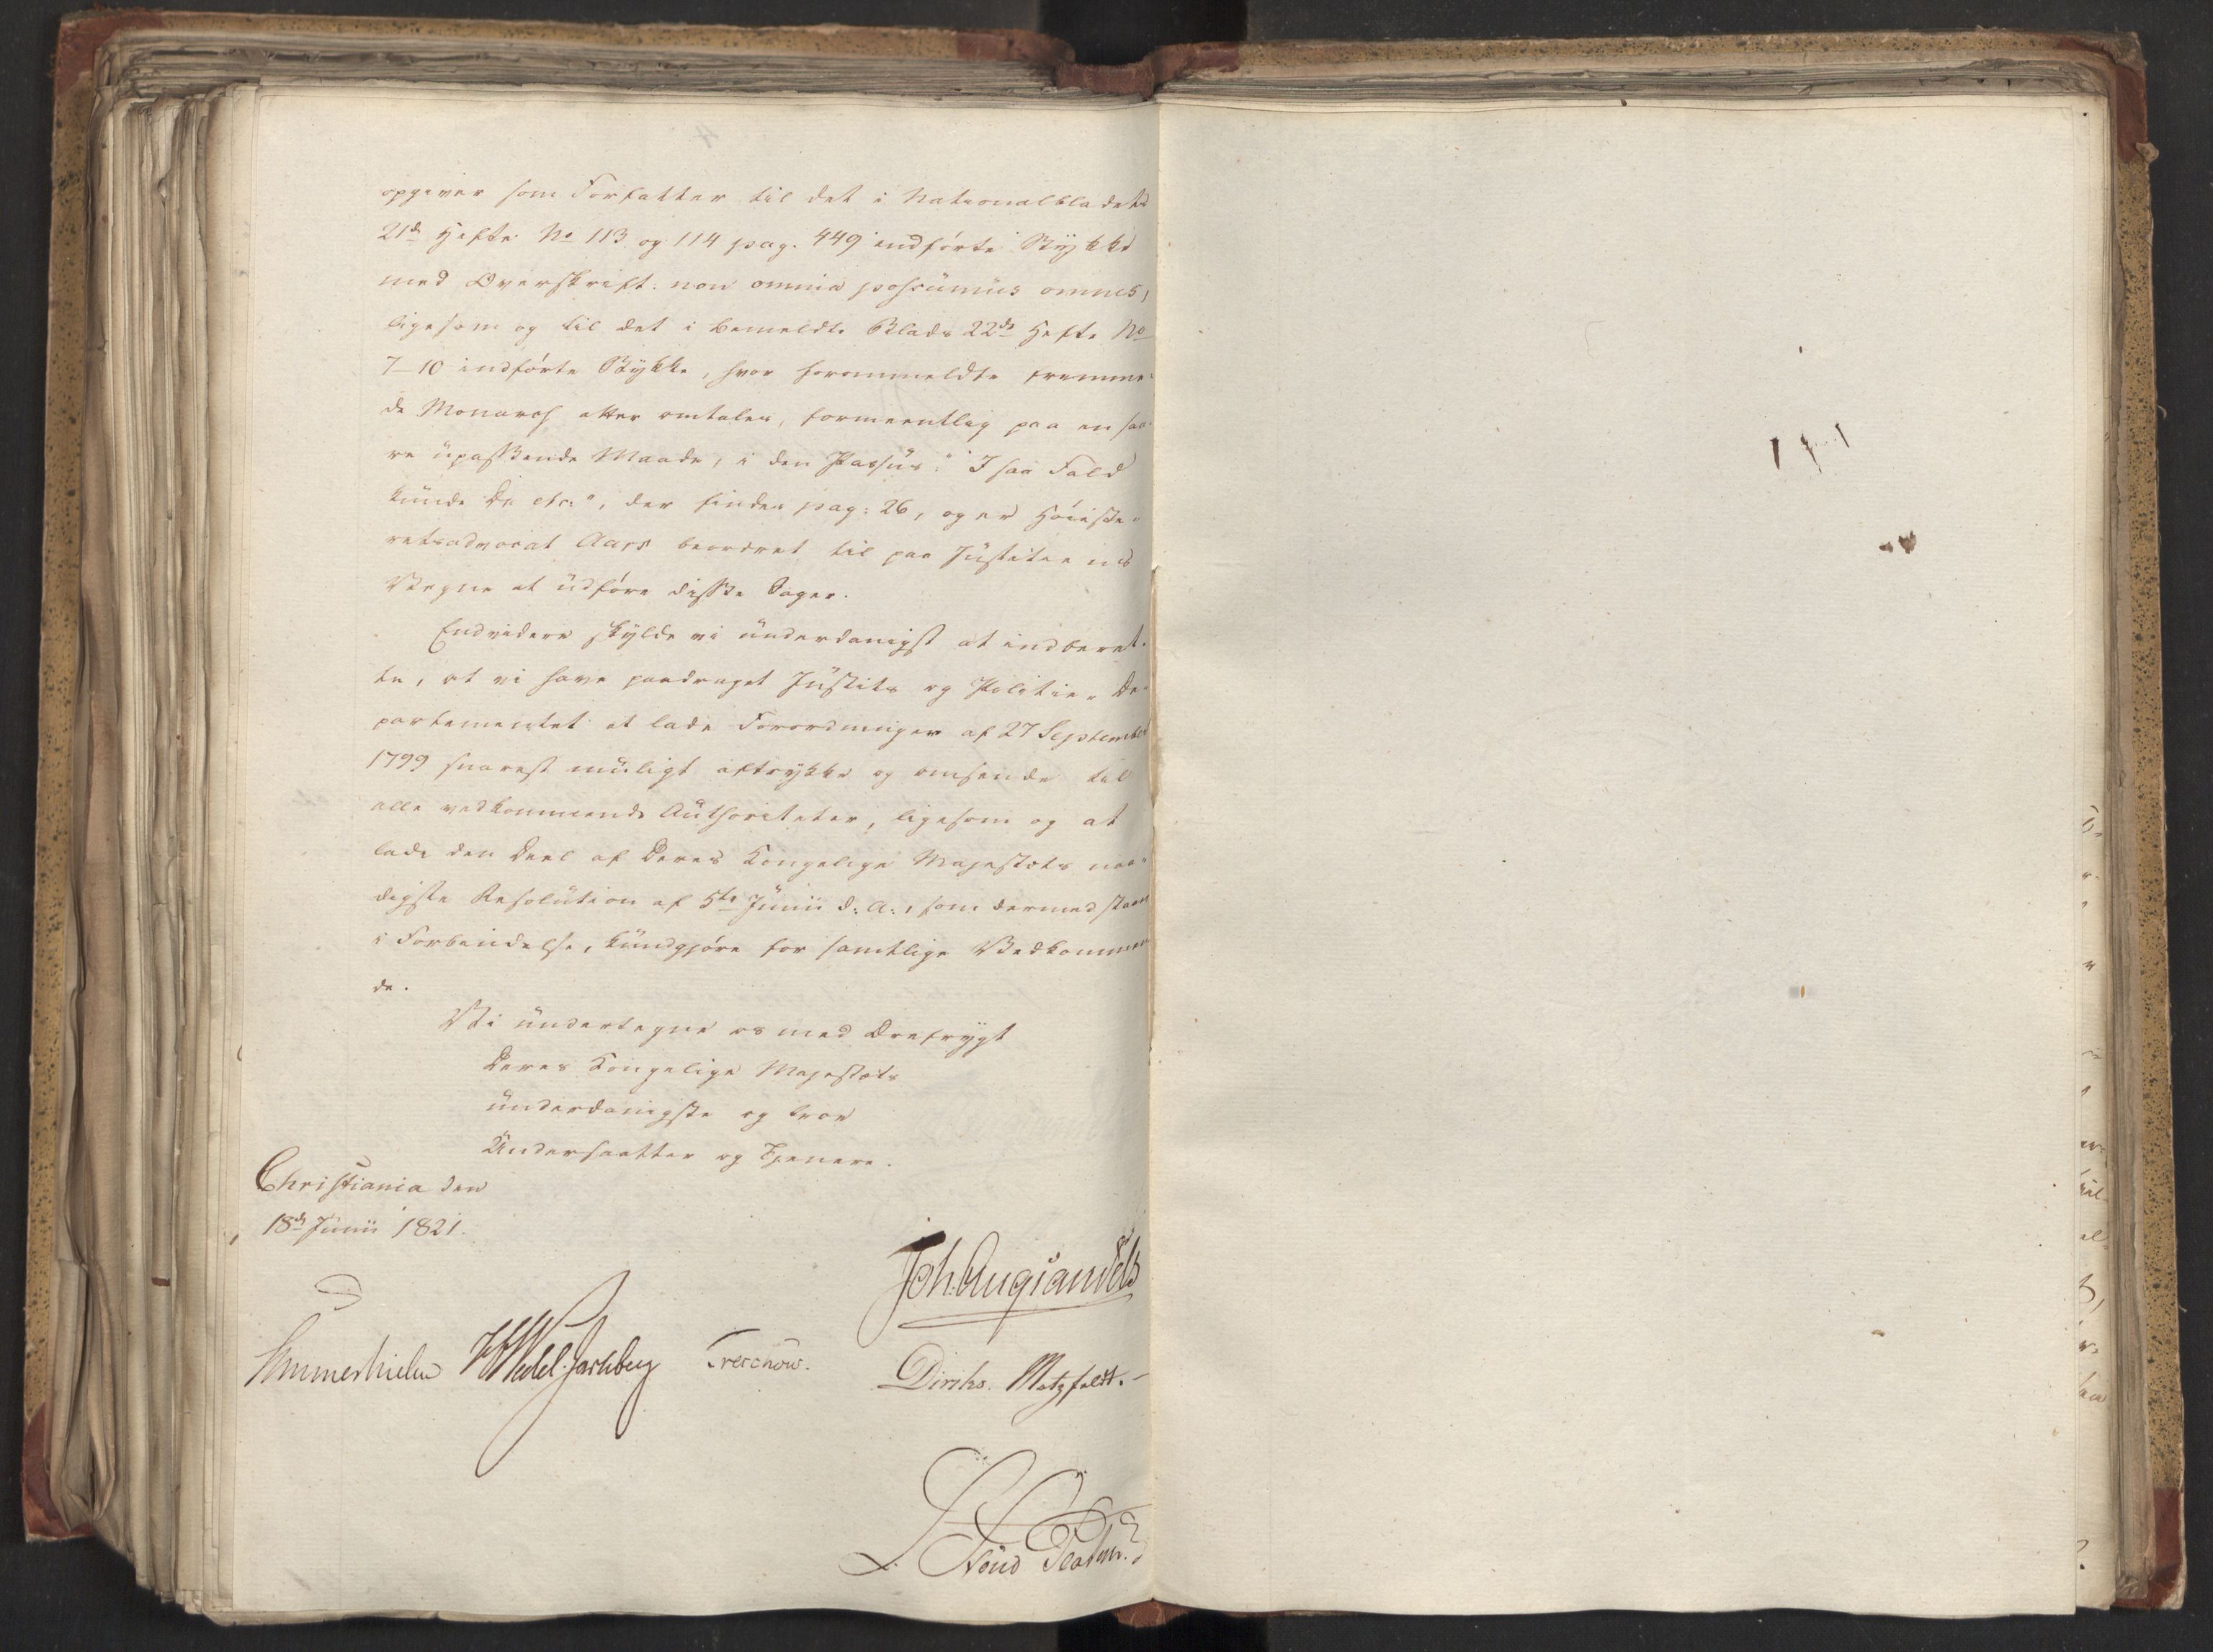 opgiver som Forfatter til det i Nationalbladets
21de Hefte No 113 og 114 pag. 449 indførte Stykke
med Overskrift: non omnia possumus omnes,
ligesom og til det i bemeldte Blads 22de Hefte No
7-10 indførte Stykke, hvor forommeldte fremme-
de Monarch atter omtales, formeentlig paa en saa-
re upassende Maade, i den Passus: "I saa Fald
kunde De etc:", der findes pag: 26, og er Høieste-
retsadvocat Aars beordret til paa Justitiens
Vegne at udføre disse Sager.
Endvidere skylde vi underdanigst at indberet-
te, at vi have paadraget Justits og Politie-De-
partementet at lade Forordningen af 27 September
1799 snarest muligt aftrykke og omsende til
alle vedkommende Authoriteter, ligesom og at
lade den Deel af Deres Kongelige Majestæts naa-
digste Resolution af 5te Junii d: A:, som dermed staaer
i Forbindelse, kundgjøre for samtlige Vedkommen
de.
Vi undertegne os med Ærefrygt
Deres Kongelige Majestæts
underdanigste og troe
Undersaatter og Tjenere.
Christiania den
18de Junii 1821.
Joh. Aug Sandels
Sommerhielm HWedel Jarlsberg Treschow.
Diriks. Motzfeldt.